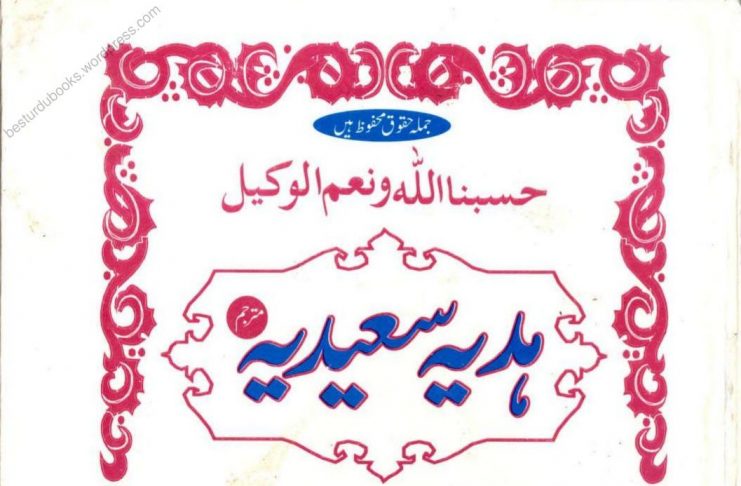 besturdubooks.wordpress.com
جملہ حقوق محفوظ ہیں
حسبنا اللہ ونعم الوکیل
ہدیہ سعیدیہ
مترجم